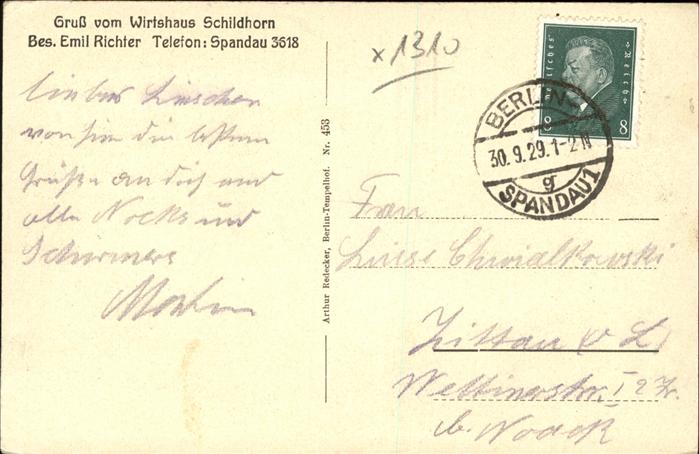 Gruß vom Wirtshaus Schildhorn
Bes. Emil Richter Telefon: Spandau 3618
x1310
Liebes Lieschen
von hier die besten
Grüße an dich und
alle Nocks und
Schirmers
Martin
Arthur Redecker, Berlin-Tempelhof. Nr. 453
Deutsches Reich
8 8
BERLIN
30.9.29.1-2N
g
SPANDAU 1
Frau
Luise Chwialkowski
Zittau
Wettinerstr.
b. Noack